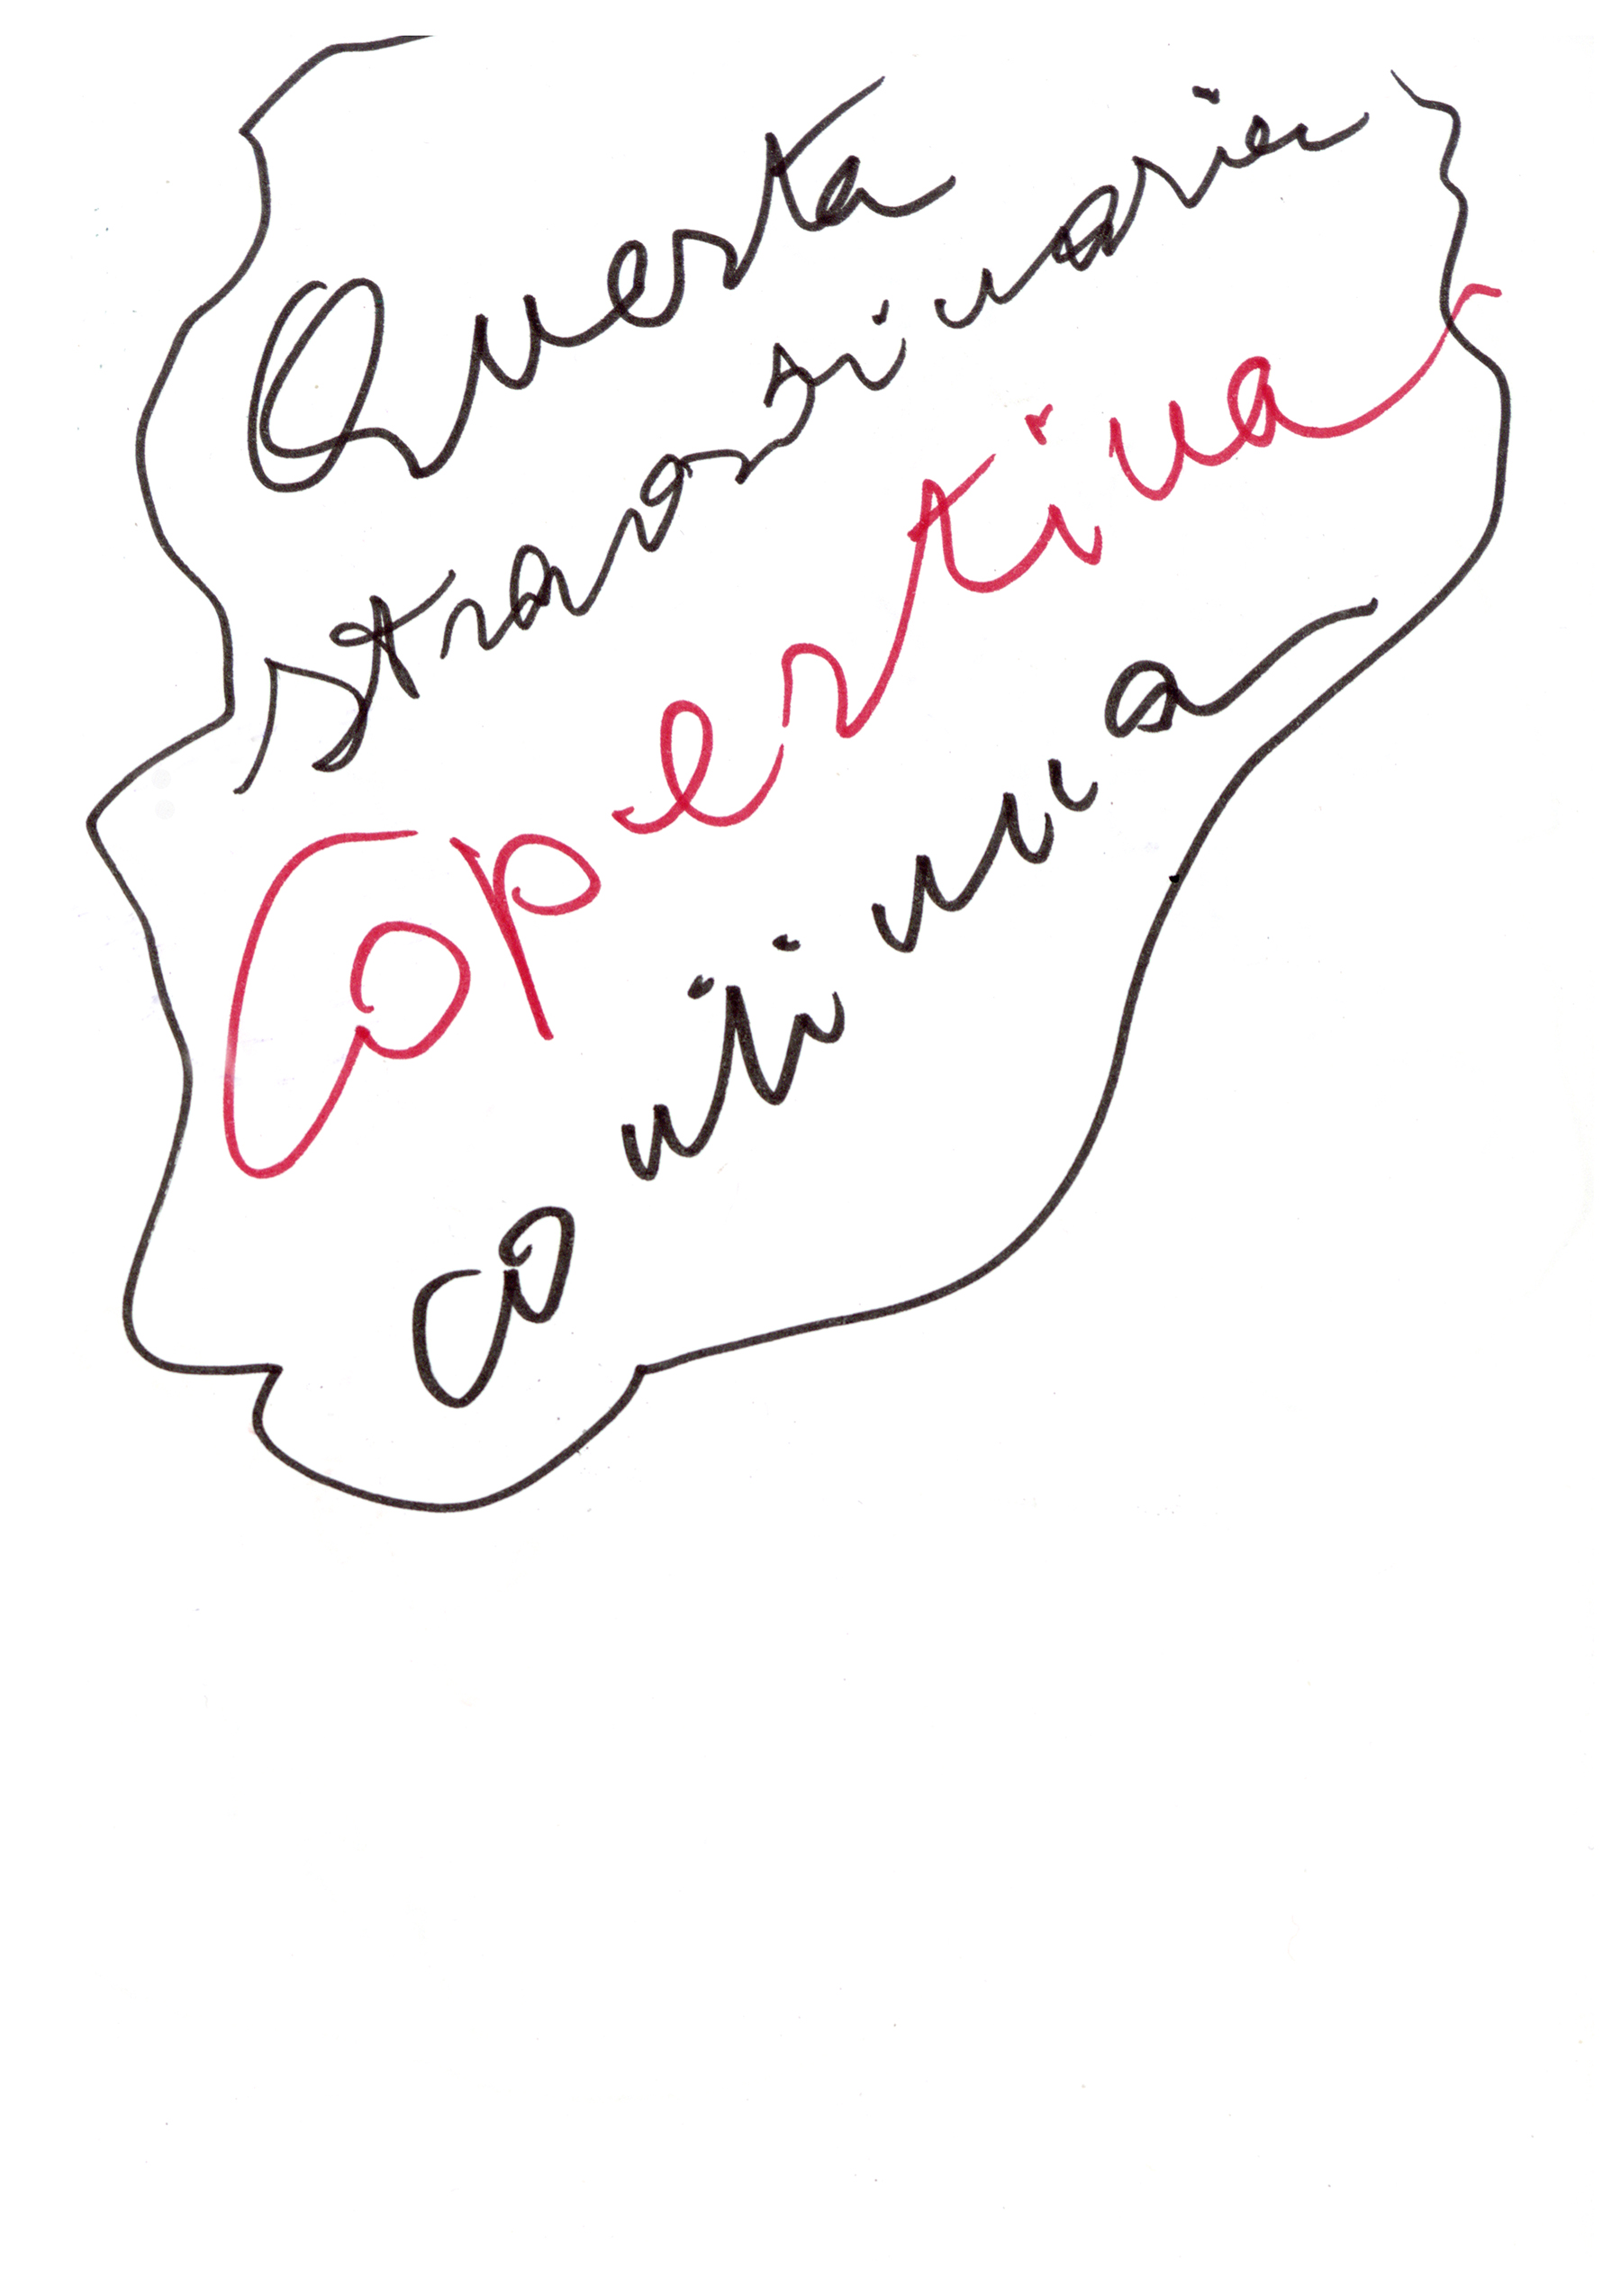 Questa
straordinaria
Copertina
continua